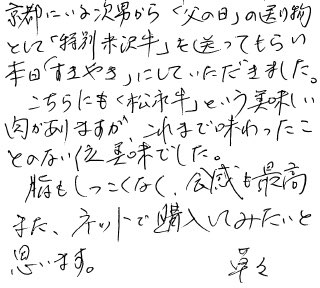 京都にいる次男から〈父の日〉の送り物
として「特別米沢牛」を送ってもらい
本日「すきやき」にしていただきました。
こちらにも〈松永牛〉という美味しい
肉がありますが、これまで味わったこ
とのない位美味でした。
脂もしつこくなく、食感も最高
また、ネットで購入してみたいと
思います。 草々